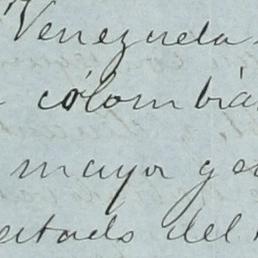 Venezuela
colombia
mayor ge
estado del